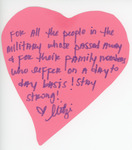 FOR All the people in the
military whose passed away
& For their family members
who suffer on a day to
day basis! Stay
strong!
♡ Mitzi